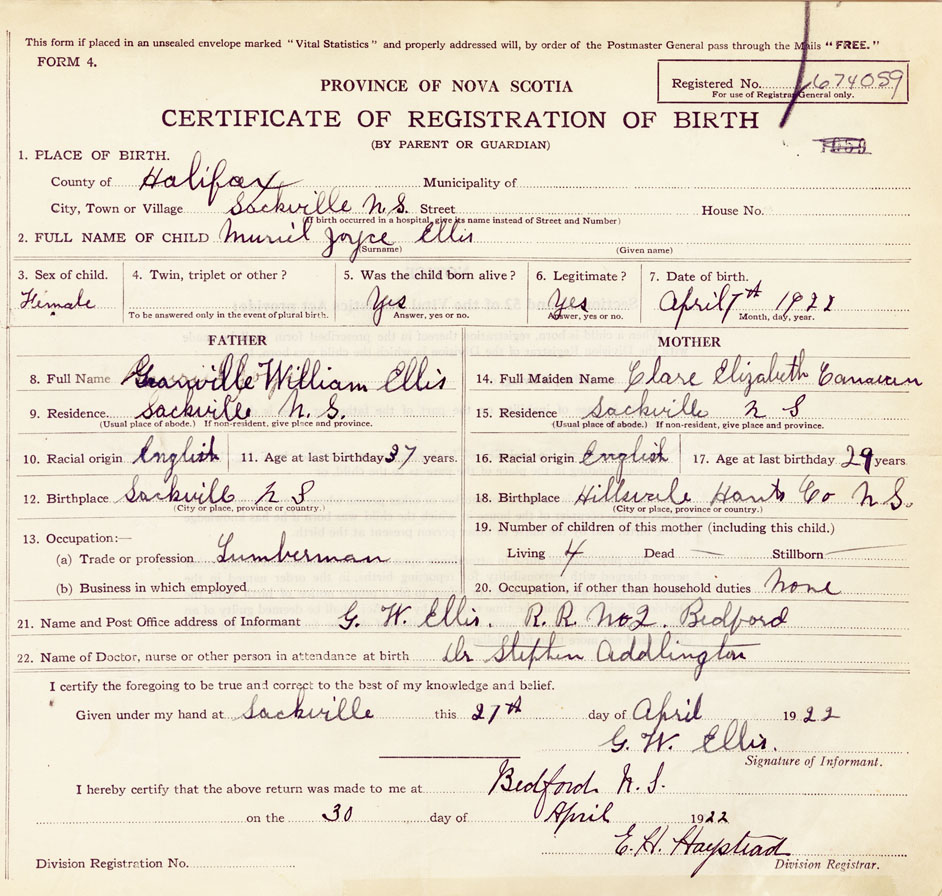 This form if placed in an unsealed envelope marked "Vital Statistics" and properly addressed will, by order of the Postmaster General pass through the Mails "FREE."
FORM 4.
PROVINCE OF NOVA SCOTIA
Registered No. 674059
For use of Registrar General only.
CERTIFICATE OF REGISTRATION OF BIRTH
(BY PARENT OR GUARDIAN)
1. PLACE OF BIRTH.
County of Halifax Municipality of
City, Town or Village Sackville N.S. Street House No.
(If birth occurred in a hospital, give its name instead of Street and Number)
2. FULL NAME OF CHILD Muriel Joyce Ellis
(Surname) (Given name)
3. Sex of child. 4. Twin, triplet or other? 5. Was the child born alive? 6. Legitimate? 7. Date of birth.
Female Yes Yes April 7th 1922
To be answered only in the event of plural birth. Answer, yes or no. Answer, yes or no. Month, day, year.
FATHER MOTHER
8. Full Name Granville William Ellis 14. Full Maiden Name Clare Elizabeth
9. Residence. Sackville N.S. 15. Residence Sackville N S
(Usual place of abode.) If non-resident, give place and province. (Usual place of abode.) If non-resident, give place and province.
10. Racial origin English 11. Age at last birthday 37 years. 16. Racial origin English 17. Age at last birthday 29 years
12. Birthplace Sackville N S 18. Birthplace Hillsvale Hants Co N.S.
(City or place, province or country.) (City or place, province or country.)
19. Number of children of this mother (including this child.)
13. Occupation:—
(a) Trade or profession Lumberman Living 4 Dead — Stillborn —
(b) Business in which employed 20. Occupation, if other than household duties None
21. Name and Post Office address of Informant G. W. Ellis. R.R. No 2. Bedford
22. Name of Doctor, nurse or other person in attendance at birth Dr Stephen Addlington
I certify the foregoing to be true and correct to the best of my knowledge and belief.
Given under my hand at Sackville this 27th day of April 1922
G. W. Ellis.
Signature of Informant.
I hereby certify that the above return was made to me at Bedford N.S.
on the 30 day of April 1922
E. H. Haystead
Division Registration No. Division Registrar.